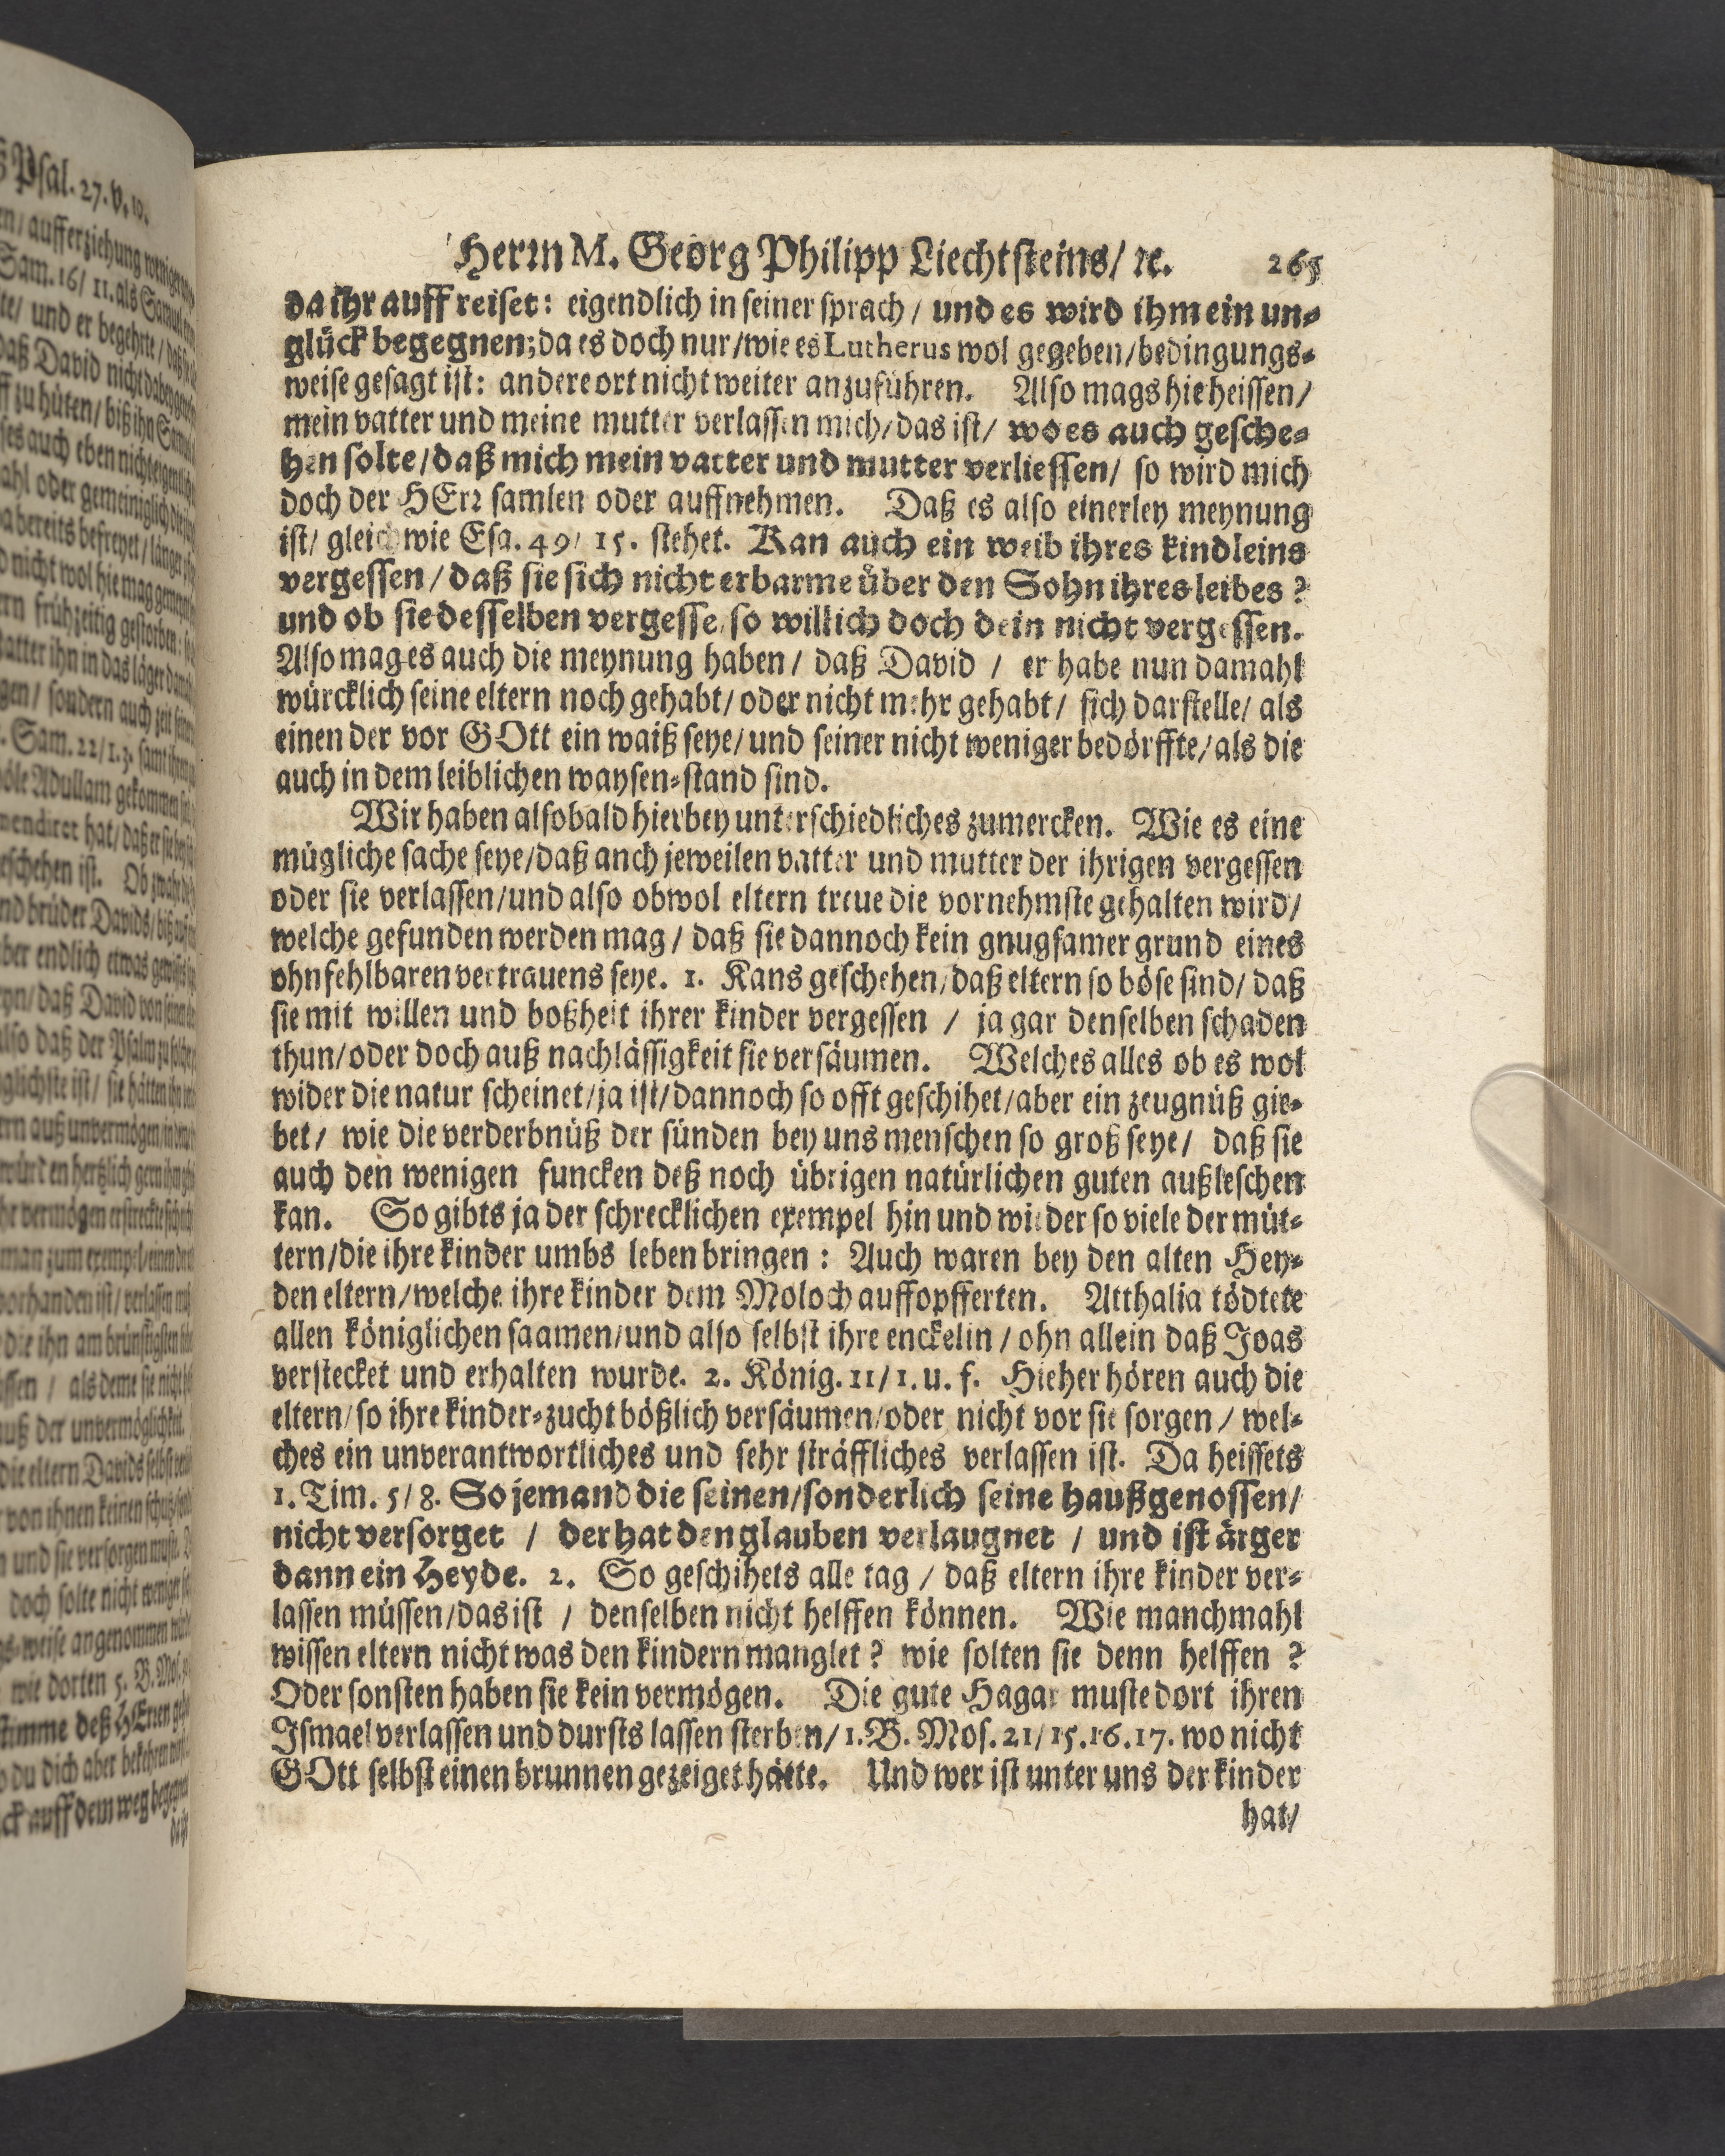 Herrn M. Georg Philipp Liechtsteins/ ꝛc. 265
da ihr auff reiset: eigendlich in seiner sprach / und es wird ihm ein un-
glück begegnen; da es doch nur/wie es Lutherus wol gegeben/bedingungs-
weise gesagt ist: andere ort nicht weiter anzuführen. Also mags hie heissen/
mein vatter und meine mutter verlassen mich/das ist/ wo es auch gesche-
hen solte/daß mich mein vatter und mutter verliessen/ so wird mich
doch der HErr samlen oder auffnehmen. Daß es also einerley meynung
ist/ gleichwie Esa. 49/ 15. stehet. Kan auch ein weib ihres kindleins
vergessen/daß sie sich nicht erbarme über den Sohn ihres leibes?
und ob sie desselben vergesse/ so will ich doch dein nicht vergessen.
Also mag es auch die meynung haben/ daß David / er habe nun damahl
würcklich seine eltern noch gehabt/oder nicht mehr gehabt/ sich darstelle/ als
einen der vor GOtt ein waiß seye/und seiner nicht weniger bedörffte/als die
auch in dem leiblichen waysen-stand sind.
Wir haben alsobald hierbey unterschiedliches zumercken. Wie es eine
mügliche sache seye/daß anch jeweilen vatter und mutter der ihrigen vergessen
oder sie verlassen/und also obwol eltern treue die vornehmste gehalten wird/
welche gefunden werden mag/ daß sie dannoch kein gnugsamer grund eines
ohnfehlbaren vertrauens seye. 1. Kans geschehen/daß eltern so böse sind/ daß
sie mit willen und boßheit ihrer kinder vergessen / ja gar denselben schaden
thun/oder doch auß nachlässigkeit sie versäumen. Welches alles ob es wol
wider die natur scheinet/ja ist/dannoch so offt geschihet/aber ein zeugnüß gie-
bet/ wie die verderbnüß der sünden bey uns menschen so groß seye/ daß sie
auch den wenigen funcken deß noch übrigen natürlichen guten außleschen
kan. So gibts ja der schrecklichen exempel hin und wieder so viele der müt-
tern/die ihre kinder umbs leben bringen: Auch waren bey den alten Hey-
den eltern/welche ihre kinder dem Moloch auffopfferten. Atthalia tödtete
allen königlichen saamen/und also selbst ihre enckelin / ohn allein daß Joas
verstecket und erhalten wurde. 2. König. 11/1. u. f. Hieher hören auch die
eltern/so ihre kinder-zucht bößlich versäumen/oder nicht vor sie sorgen/ wel-
ches ein unverantwortliches und sehr sträffliches verlassen ist. Da heissets
1. Tim. 5/8. So jemand die seinen/sonderlich seine haußgenossen/
nicht versorget / der hat den glauben verlaugnet / und ist ärger
dann ein Heyde. 2. So geschihets alle tag / daß eltern ihre kinder ver-
lassen müssen/das ist / denselben nicht helffen können. Wie manchmahl
wissen eltern nicht was den kindern manglet? wie solten sie denn helffen?
Oder sonsten haben sie kein vermögen. Die gute Hagar muste dort ihren
Ismael verlassen und dursts lassen sterben/1. B. Mos. 21/15.16.17. wo nicht
GOtt selbst einen brunnen gezeiget hätte. Und wer ist unter uns der kinder
hat/